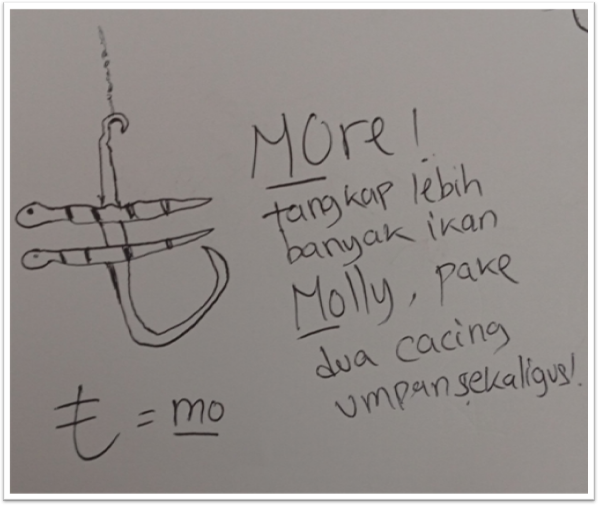 MOre!
tangkap lebih
banyak ikan
Molly, pake
dua cacing
umpan sekaligus!
も = mo